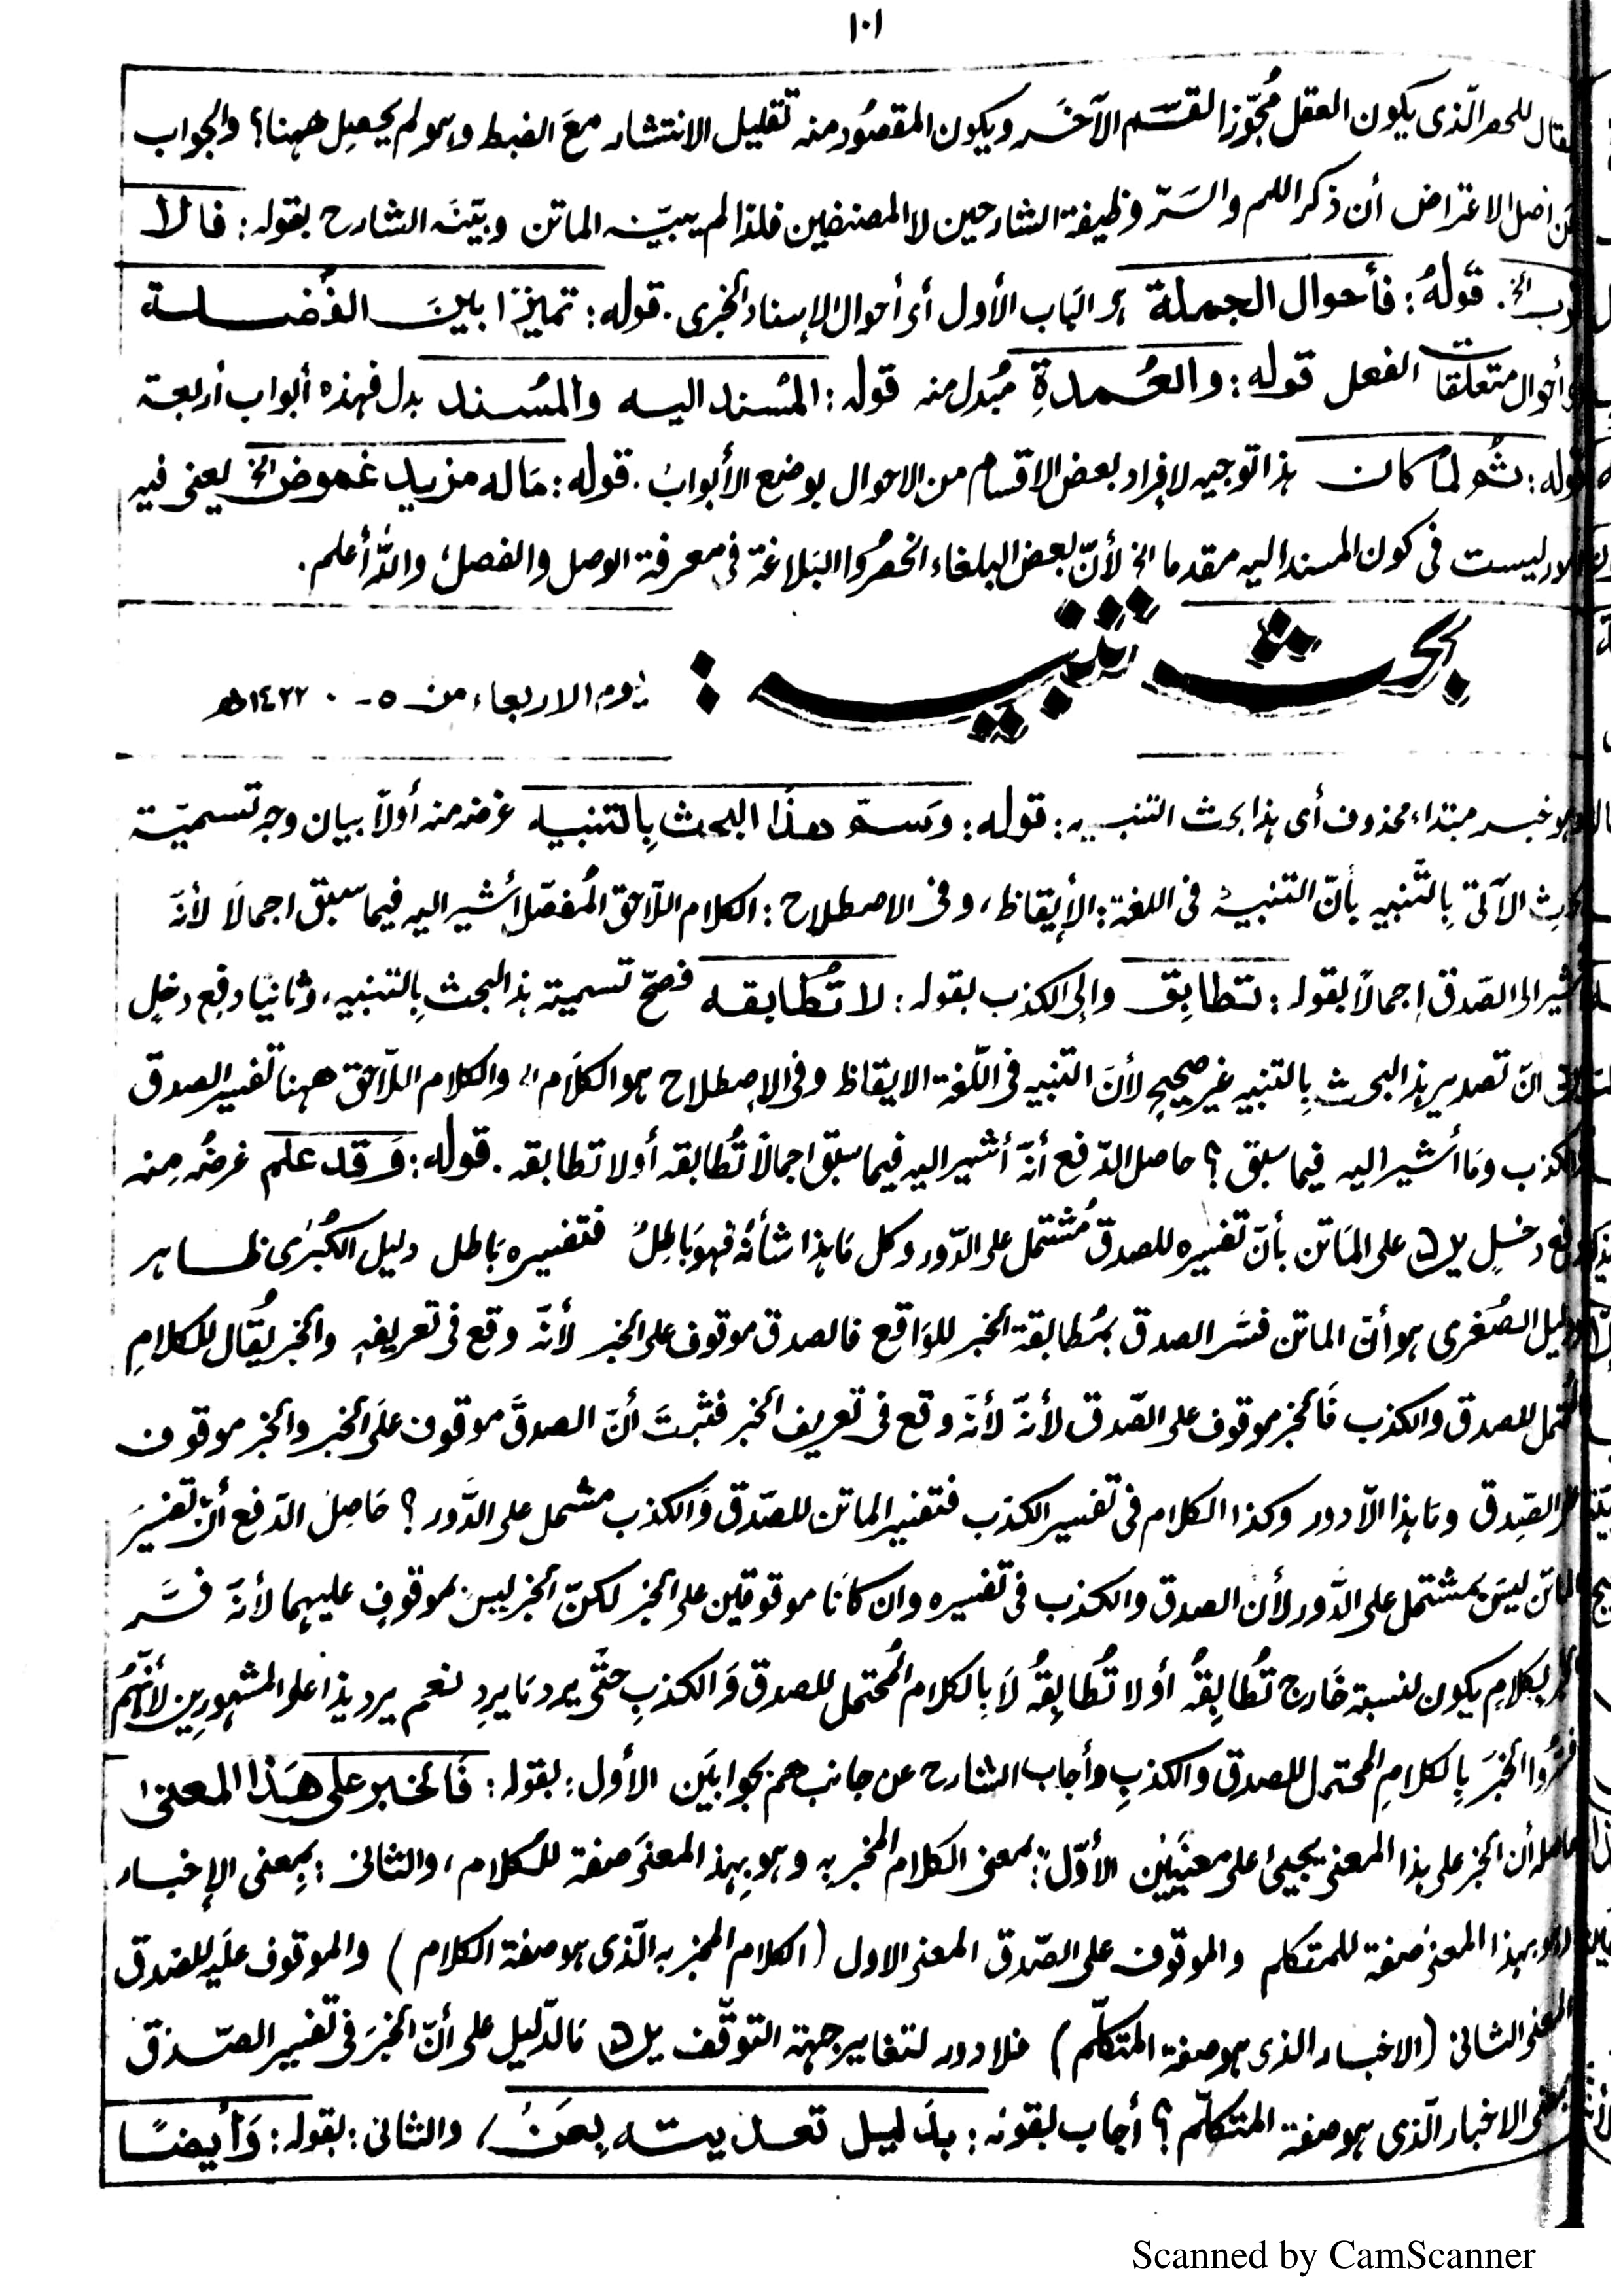 ١٠١
يقال للحصر الّذى يكون العقل مُجوّزا لقسم الآخر ويكون المقصُود منه تقليل الانتشار معَ الضبط وهو لم يحصل ههنا؟ والجواب
أصل الاعتراض أن ذكر اللم والسّرّ وظيفة الشارحين لا المصنفين فلذا لم يبيّنه الماتن وبيّنَه الشارح بقوله: فالا
الخ. قولهُ: فأحوال الجملة هو الباب الأول أى أحوال الإسناد الخبرى. قوله: تميزًا بينَ الفُضلة
وأحوال متعلقات الفعل قوله: والعُمدةِ مُبدل منه قوله: المُسند اليه والمُسند بدل فهذه أبواب أربعة
قوله: ثُم لمّا كان هذا توجيه لإفراد بعض الاقسام من الاحوال بوضع الأبواب. قوله: مَاله مزيد غموض الخ يعنى فيه
ليست فى كون المسند اليه مقدما الخ لأنّ بعض البلغاء انحصرُوا البَلاغة فى معرفة الوصل والفصل والله أعلم.
بحث تنبيه :
يوم الاربعاء من ٥ - ٠ ١٤٢٢ھ
وهو خبر مبتداء محذوف أى هذا بحث التنبيه: قوله: وَسمّ هذَا البحث بِالتنبيه غرضه منه أولاً بيان وجه تسميّة
الآتى بِالتَّنبيه بأنّ التنبيهَ فى اللغة: الأيقاظ، وفى الاصطلاح: الكلام اللّاحق المُفصّل أشير اليه فيما سبق اجمالاً لأنّه
أشير الى الصّدق إجمالاً بقوله: تطابِق وإلى الكذب بقوله: لا تُطابقه فصحّ تسمية هذ البحث بِالتنبيه، وثانيا دفع دخلٍ
انّ تصدير هذ البحث بِالتنبيه غير صحيحٍ لأنَ التنبيه فى اللّغة الايقاظ وفى الاصطلاح هو الكلَام الخ والكلام اللّاحق ههنا تفسير الصدق
والكذب ومَا أشير اليه فيما سبق؟ حاصل الدّفع أنّه أشير اليه فيما سبق اجمالًا تُطابقه أو لا تطابقه. قوله: وَقد علم غرضُه مِنه
دفع دخلٍ يرد على المَاتن بأنّ تفسيره للصدق مُشتمل على الدّور وكل مَا هذا شأنُه فهو بَاطِلٌ فتفسيره بَاطل دليل الكُبرٰى ظاهر
ودليل الصُغرى هو أن الماتن فسّر الصدق بمُطابقة الخبر للوَاقع فالصدق موقوف على الخبر لأنّه وقع فى تعريفهِ والخبر يُقال للكلامِ
المحتمل للصدق والكذب فَالخبر موقوف على الصّدق لأنّه لأنّه وقع فى تعريف الخبر فثبتَ أنّ الصدقَ موقوف علَى الخبر والخبر موقوف
على الصِدق ومَا هذا الّا دور وكذا الكلام فى تفسير الكذب فتفسير الماتن للصّدق وَالكذب مشمل على الدَّور؟ حَاصِل الدّفع أنّ تفسيرَ
الماتن ليسَ بمشتمل على الدَّور لأن الصدق والكذب فى تفسيره وان كانَا موقوفين على الخبر لكنّ الخبر ليس بموقوفٍ عليهما لأنّه فسَّر
الخبر بكلامٍ يكون لنسبته خَارج تُطَابِقهُ أو لا تُطَابِقهُ لَا بِالكلام المُحتمل للصدق وَالكذبِ حتّٰى يرد مَا يردِ نعم يرد هذا على المشهورِين لأنّهُم
فسّرُوا الخبَرَ بِالكلامِ المحتمل للصدق والكذبِ وأجاب الشارح عن جانبهم بجوابَين الأول: بقوله: فَالخبر على هَذا المعنى
حاصله أن الخبر على هذا المعنى يجيئ على معنَيين الأوّل: بمعنى الكلام المخبر به وهو بِهذ المعنَى صفة للكلام، والثانى: بِمعنى الإخبار
وهو بهذا المعنى صفة للمتكلم والموقوف على الصّدق المعنى الاول (الكلام المخبر به الّذى هو صفة الكلام) والموقوف علَيه للصدق
المعنى الثانى (الاخبار الذى هو صفة المتكلّم) فلا دور لتغاير جهة التوقّف يرد مَا الدّليل على أنّ الخبرَ فى تفسير الصّدق
بمعنى الاخبار الّذى هو صفة المتكلّم؟ أجاب بقوله: بدَليل تعديته بِعَنْ، والثانى: بقوله: وَأيضًا
Scanned by CamScanner